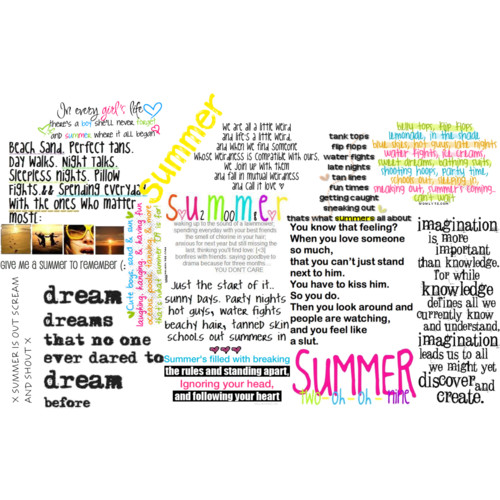 In every girl's life
there's a boy she'll never forget
and summer where it all began
Beach Sand. Perfect tans.
Day Walks. Night Talks.
Sleepless nights. Pillow
Fights.&& Spending everyday
With the ones who matter
most:
Give me a summer to remember (:
X SUMMER IS OUT SCREAM
AND SHOUT X
dream
dreams
that no one
ever dared to
dream
before
Summer
Cute boys, sand & sun
laughing, singing, & having fun
we are all a little weird
and life's a little weird
and when we find someone
whose weirdness is compatible with ours,
we join up with them
and fall in mutual weirness
and call it love
Summer
waking up to the sound of a lawnmower,
spending everyday with your best friends
the smell of chlorine in your hair;
anxious for next year but still missing the
last. thinking you'll find love [<3]
bonfires with friends. saying goodbye to
drama because for three months...
YOU DON'T CARE
Just the start of it..
sunny days. party nights
hot guys, water fights
beachy hair, tanned skin
schools out summers in
Summer's filled with breaking
the rules and standing apart.
Ignoring your head,
and following your heart
tank tops
flip flops
water fights
late nights
tan lines
fun times
getting caught
sneaking out
thats what summers all about
You know that feeling?
When you love someone
so much,
that you can't just stand
next to him.
You have to kiss him.
So you do.
Then you look around and
people are watching,
and you feel like
a slut.
SUMMER
two-oh-oh-nine
belly tops, flip flops
lemonade, in the shade
blue skies, hot guys, late nights
water fights, ice creams,
sweet dreams, bathing suits,
shooting hoops, party time,
schools out, sleeping in
sneaking out, summer's coming...
can't wait
imagination
is more
important
than knowledge.
for while
knowledge
defines all we
currently know
and understand,
imagination
leads us to all
we might yet
discover and
create.